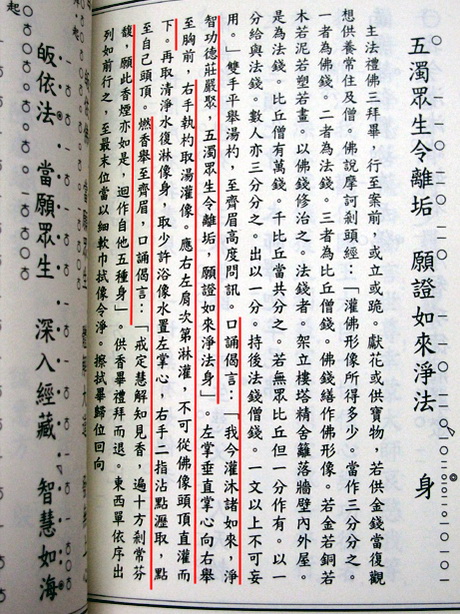 五濁眾生令離垢　願證如來淨法　身
主法禮佛三拜畢，行至案前，或立或跪。獻花或供寶物，若供金錢當復觀
想供養常住及僧。佛說摩訶剎頭經：「灌佛形像所得多少。當作三分分之。
一者為佛錢。二者為法錢。三者為比丘僧錢。佛錢繕作佛形像。若金若銅若
木若泥若塑若畫。以佛錢修治之。法錢者。架立樓塔精舍籬落牆壁內外屋。
是為法錢。比丘僧有萬錢。千比丘當共分之。若無眾比丘但一分作有。以一
分給與法錢。數人亦三分分之。出以一分。持後法錢僧錢。一文以上不可妄
用。」雙手平舉湯杓，至齊眉高度問訊。口誦偈言：「我今灌沐諸如來，淨
智功德莊嚴聚，五濁眾生令離垢，願證如來淨法身」。左掌垂直掌心向右舉
至胸前，右手執杓取湯灌像。應右左肩次第淋灌，不可從佛像頭頂直灌而
下。再取清淨水復淋像身，取少許浴像水置左掌心，右手二指沾點瀝取，點
至自己頭頂。燃香舉至齊眉，口誦偈言：「戒定慧解知見香，遍十方剎常芬
馥，願此香煙亦如是，迴作自他五種身」。供香畢禮拜而退。東西單依序出
列如前行之，至最末位當以細軟巾拭像令淨。擦拭畢歸位回向
皈依法　當願眾生　深入經藏　智慧如海
起